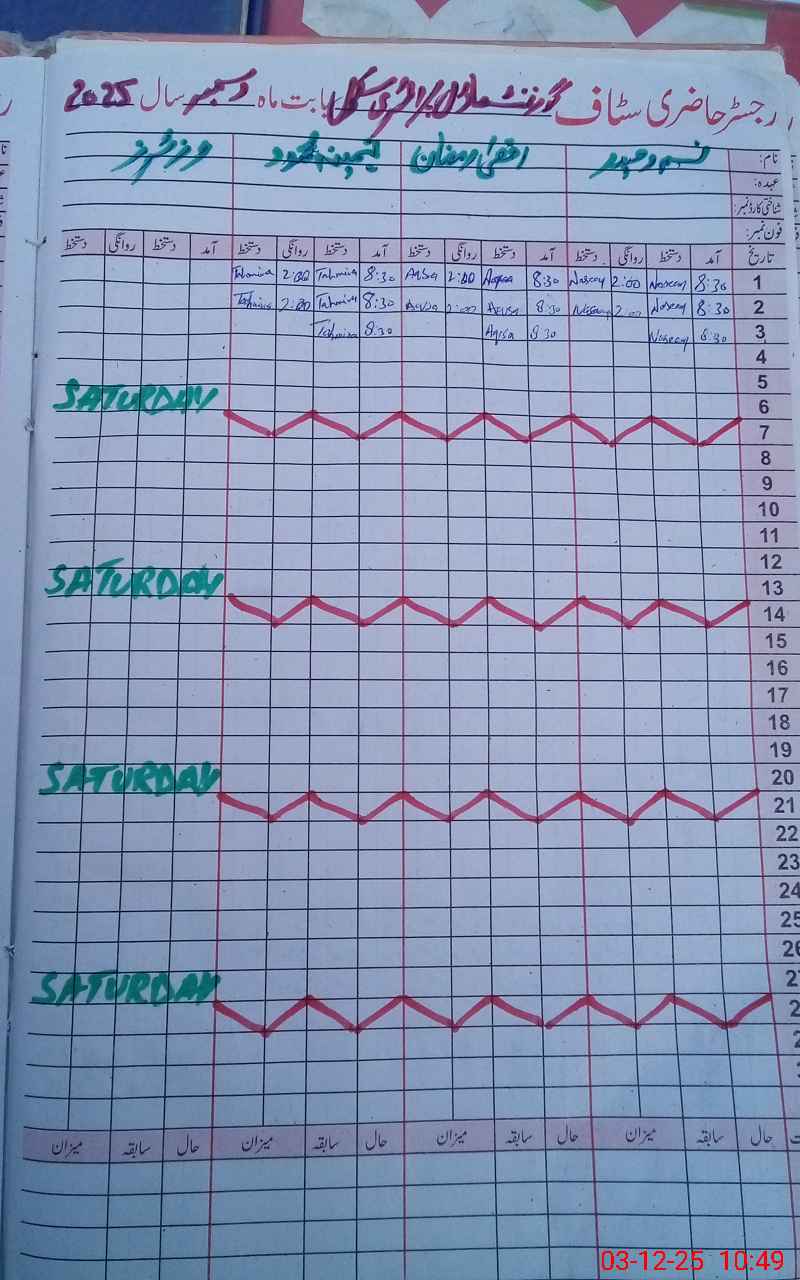 رجسٹر حاضری سٹاف گورنمنٹ ماڈل پرائمری سکول بابت ماہ دسمبر سال 2025
نام: نسیم وحید اقصیٰ رمضان تہمینہ محمود وزٹرز
عہدہ:
شناختی کارڈ نمبر:
فون نمبر:
تاریخ آمد دستخط روانگی دستخط آمد دستخط روانگی دستخط آمد دستخط روانگی دستخط آمد دستخط روانگی دستخط
1 8:30 Naseem 2:00 Naseem 8:30 Aqsa 2:00 Aqsa 8:30 Tahmina 2:00 Tahmina
2 8:30 Naseem 2:00 Naseem 8:30 Aqsa 2:00 Aqsa 8:30 Tahmina 2:00 Tahmina
3 8:30 Naseem 8:30 Aqsa 8:30 Tahmina
4
5
6 SATURDAY
7
8
9
10
11
12
13 SATURDAY
14
15
16
17
18
19
20 SATURDAY
21
22
23
24
25
26
27 SATURDAY
2
2
حال سابقہ میزان حال سابقہ میزان حال سابقہ میزان حال سابقہ میزان
03-12-25 10:49